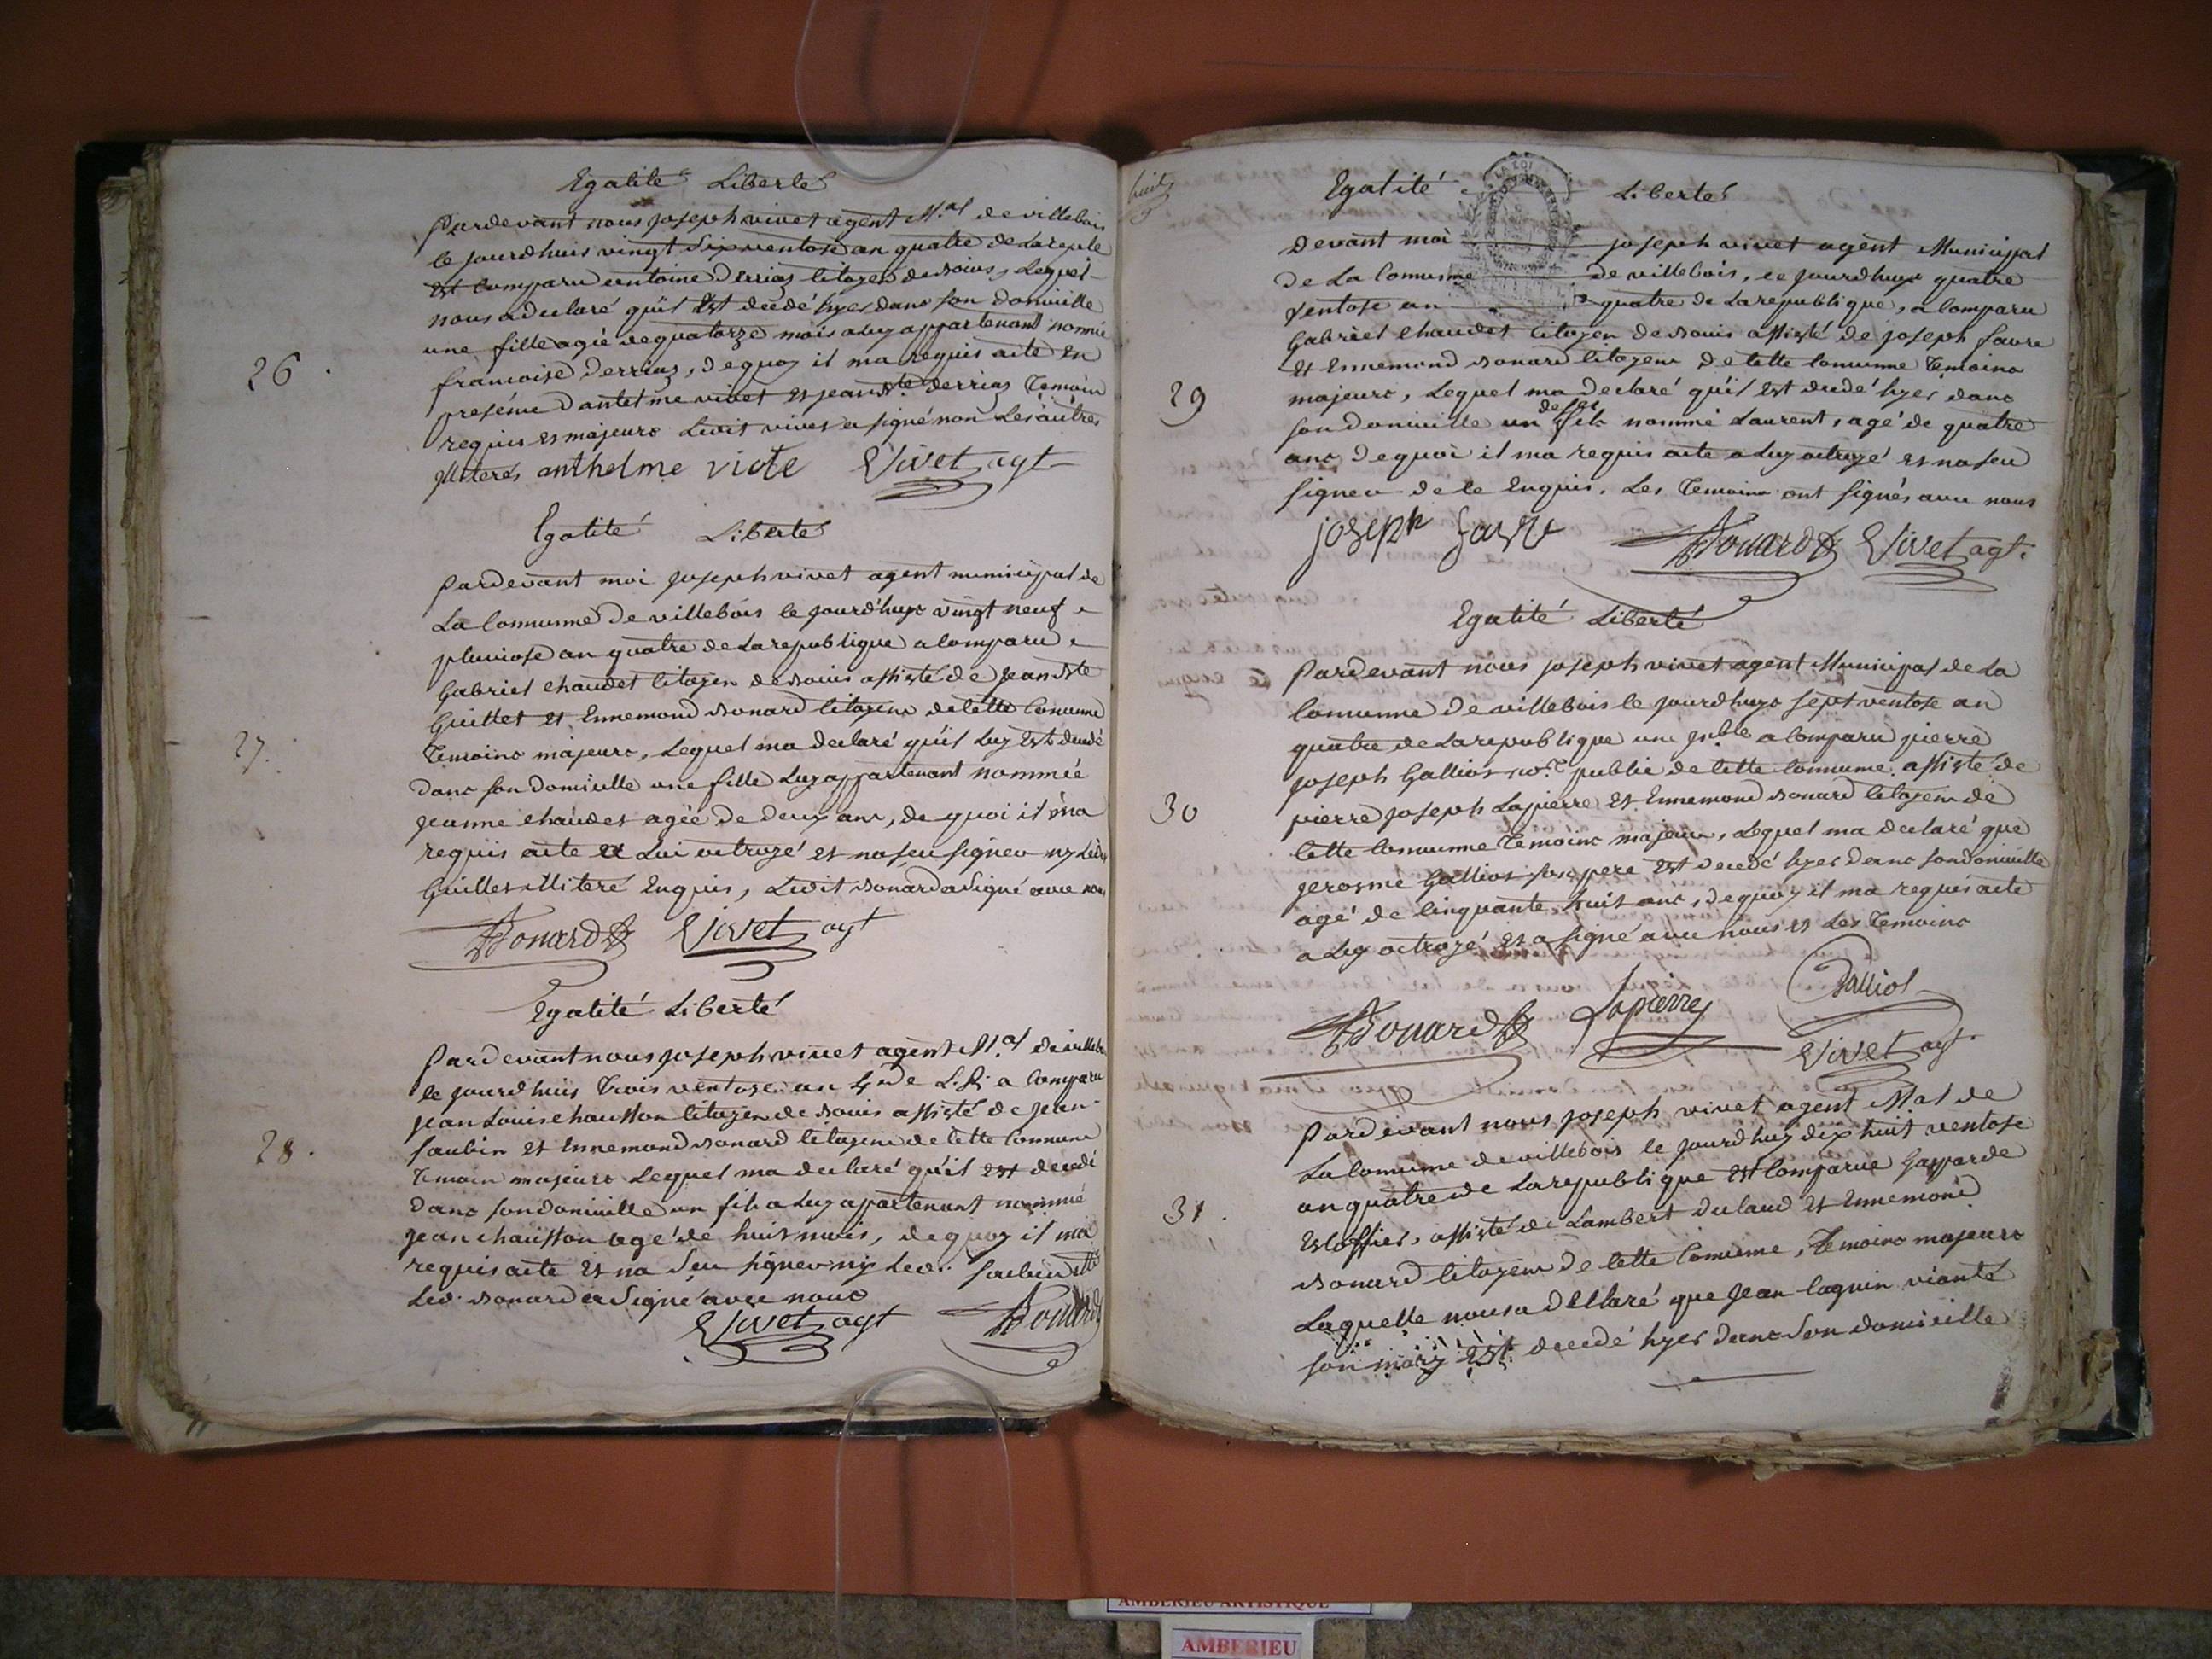 Egalité Liberté
Pardevant nous joseph vivet agent M.al de villebois
le jourdhuis vingt six ventose an quatre de La repu.le
est comparu antoine Derriaz citoyen de souis, Lequel
nous a declaré quil Est decedé hyer dans son domicille
une fille agée de quatorze mois a luy appartenant nommée
francoise Derriaz, de quoy il ma requis acte En
26.
presénce dantelme vivet et jean B.te Derriaz Temoin
requis et majeurs Ledit vivet a signé non Les autres
illiterés anthelme viote Vivet agt
Egalité Liberté
Pardevant moi joseph vivet agent municipal de
La Commune de villebois le jourd'huys vingt neuf
pluviose an quatre de La republique a comparu
Gabriel chaudet citoyen de souis assisté de Jean Bte
Guillet et Ennemond Bonard citoyens de cette Commune
27.
Temoins majeurs, Lequel ma declaré quil Luy Est decedé
dans son domicille une fille Luy appartenant nommée
jeanne chaudet agée de deux ans, de quoi il ma
requis acte a Lui octroyé et na seu signer ny Ledit
Guillet illiteré Enquis, Ledit Bonard a Signé avec nous
Bonard Vivet agt
Egalité Liberté
Pardevant nous joseph vivet agent M.al de villebois
le jourdhuis Trois ventose an 4 de L. R. a Comparu
jean Louis chausson citoyen de souis assisté de jean
saubin et Ennemond Bonard citoyens de cette Commune
28.
Temoin majeurs Lequel ma declaré quil est decedé
dans son domicille un fils a Luy apartenant nommé
jean chausson agé de huit mois, de quoy il ma
requis acte Et na Seu signer ny Led. saubin
Led. Bonard a Signé avec nous
Vivet agt Bonard
huit
Egalité Liberté
LA LOI
Devant moi joseph vivet agent Municipal
de La Commune de villebois, ce jourdhuy quatre
ventose an quatre de La republique, a Comparu
Gabriel chaudet citoyen de souis assisté de joseph favre
et Ennemond Bonard citoyens de cette Commune Temoins
29
majeurs, Lequel ma declaré quil est decedé hyer dans
son domicille un de ses fils nommé Laurent, agé de quatre
ans de quoi il ma requis acte a Luy octroyé et na seu
signer de ce Enquis. Les Temoins ont signés avec nous
joseph favre Bonard Vivet agt.
Egalité Liberté
Pardevant nous joseph vivet agent Municipal de La
Commune de villebois le jourdhuys sept ventose an
quatre de La republique a Comparu pierre
joseph Galliot no.re public de cette Commune assisté de
30
pierre joseph Lapierre et Ennemond Bonard citoyens de
Cette Commune Temoins majeurs, Lequel ma declaré que
jerosme Galliot son pere Est decedé hyer dans son domicille
agé de Cinquante huit ans, de quoy il ma requis acte
a Luy octroyé et a signé avec nous et Les Temoins
Bonard Lapierre Galliot
Vivet agt.
Pardevant nous joseph vivet agent M.al de
La Commune de villebois le jourdhuy dix huit ventose
an quatre de La republique est Comparue Gasparde
31.
Escoffier, assisté de Lambert Dulaud et Ennemond
Bonard citoyens de cette Commune, Temoins majeurs
Laquelle nous a declaré que jean Coquin viante
son mary Est decedé hyer dans Son domicille
AMBERIEU ARTISTIQUE
AMBERIEU